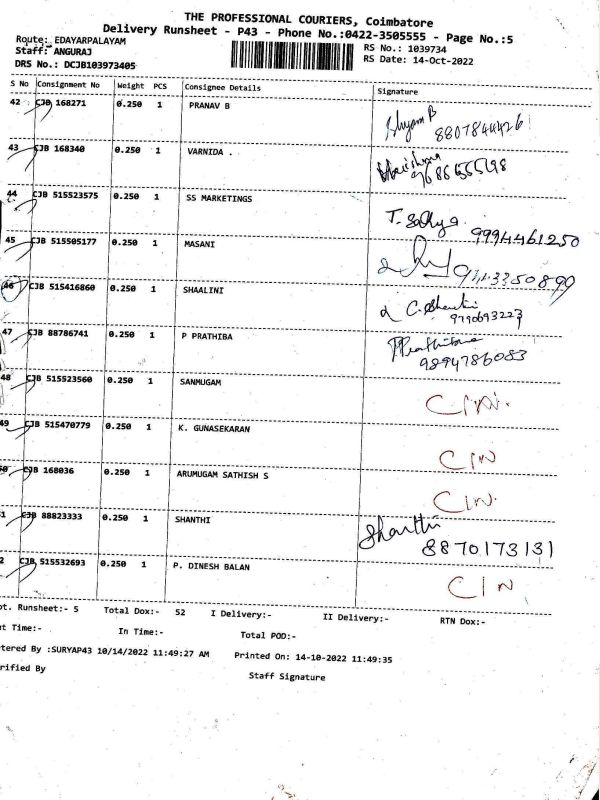 THE PROFESSIONAL COURIERS, Coimbatore
Delivery Runsheet - P43 - Phone No.:0422-3505555 - Page No.:5
Route: EDAYARPALAYAM
Staff: ANGURAJ
DRS No.: DCJB103973405
RS No.: 1039734
RS Date: 14-Oct-2022
S No Consignment No Weight PCS Consignee Details Signature
42 CJB 168271 0.250 1 PRANAV B
8807844426
43 CJB 168340 0.250 1 VARNIDA .
44 CJB 515523575 0.250 1 SS MARKETINGS T. Sathya
9994461250
45 CJB 515505177 0.250 1 MASANI
46 CJB 515416860 0.250 1 SHAALINI
9790693223
47 CJB 88786741 0.250 1 P PRATHIBA Prathiba
9894786083
48 CJB 515523560 0.250 1 SANMUGAM
49 CJB 515470779 0.250 1 K. GUNASEKARAN
CIN
50 CJB 168036 0.250 1 ARUMUGAM SATHISH S CIN.
51 CJB 88823333 0.250 1 SHANTHI Shanthi
8870173131
52 CJB 515532693 0.250 1 P. DINESH BALAN CIN
ot. Runsheet:- 5 Total Dox:- 52 I Delivery:- II Delivery:- RTN Dox:-
ut Time:- In Time:- Total POD:-
tered By :SURYAP43 10/14/2022 11:49:27 AM Printed On: 14-10-2022 11:49:35
rified By Staff Signature